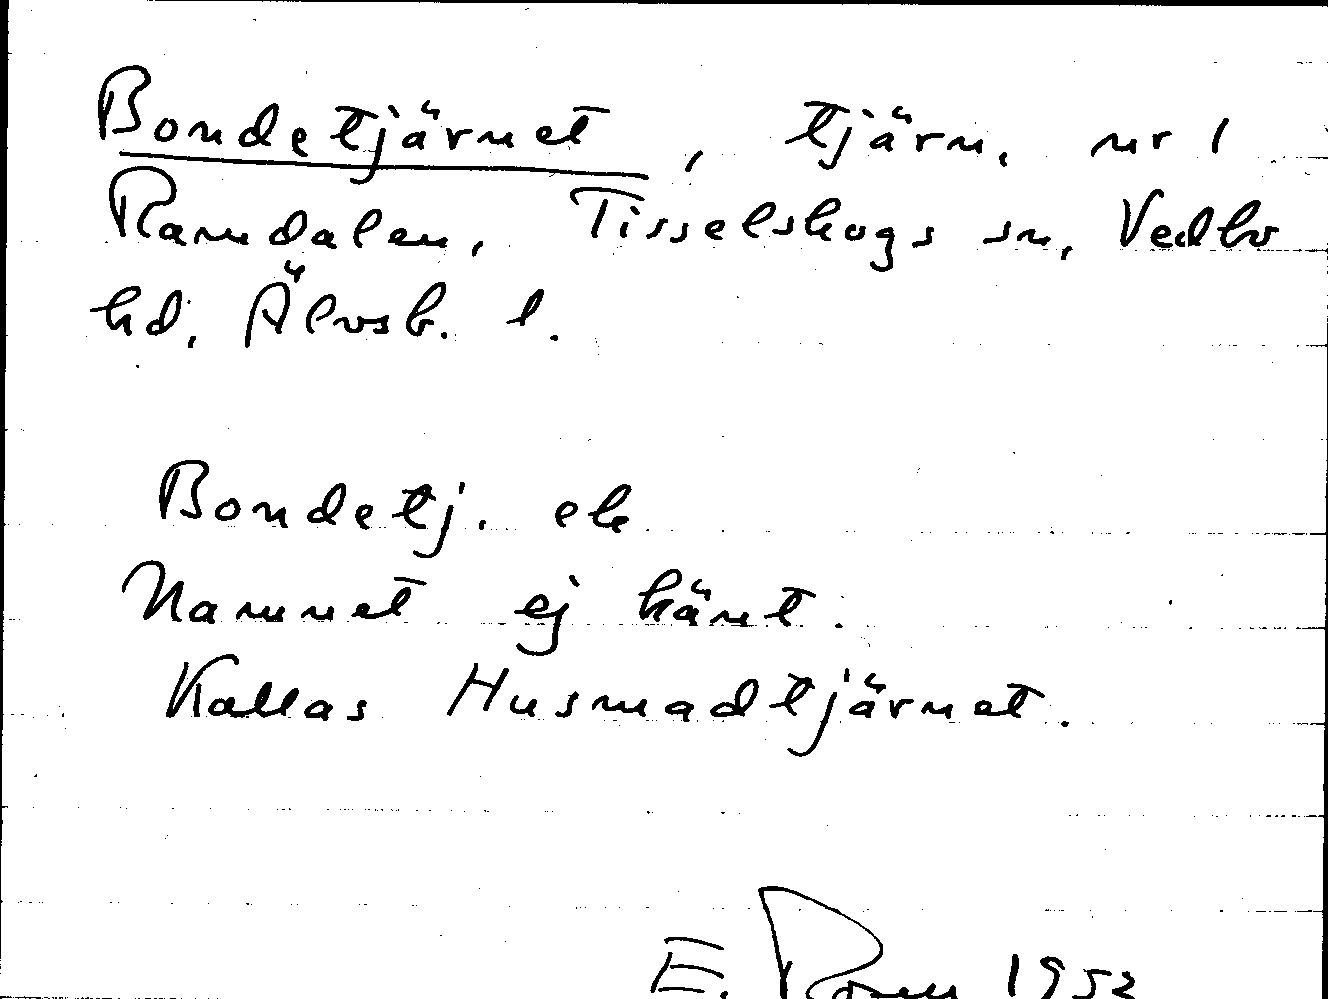 Bondetjärnet, tjärn, nr 1
Ramdalen, Tisselskogs sn, Vedbo
hd, Älvsb. l.
Bondetj. ek
Namnet ej känt.
Kallas Husmadtjärnet.
E. 1952